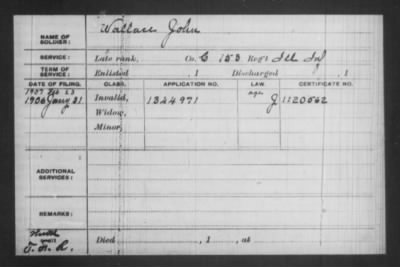 Wallace John
NAME OF SOLDIER:
SERVICE: Late rank, Co. G 153 Reg't Ill Inf
TERM OF SERVICE: Enlisted , 1 Discharged , 1
DATE OF FILING. CLASS. APPLICATION NO. LAW. CERTIFICATE NO.
1907 Feb 23 age
1906 Jany 31 Invalid, 1344971 J 1120562
Widow,
Minor,
ADDITIONAL SERVICES:
REMARKS:
Died , 1 , at